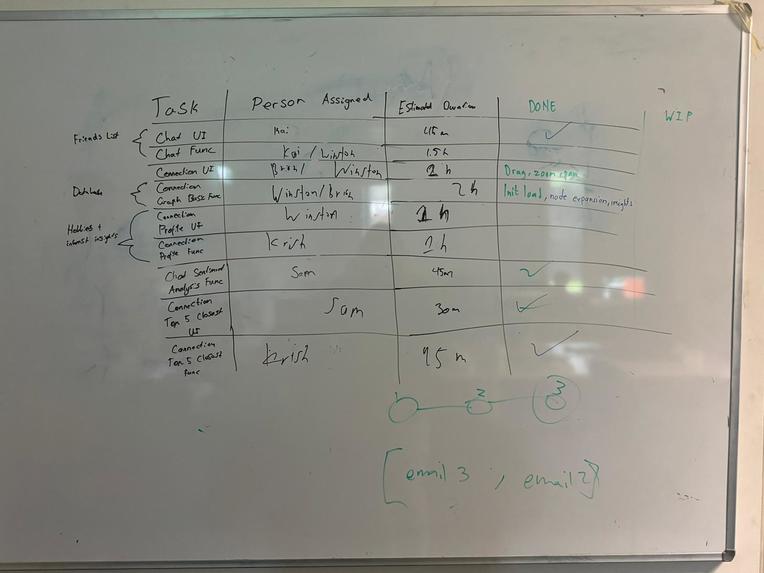 Task Person Assigned Estimated Duration DONE WIP
Friends List
Chat UI Kai 45m
Chat Func Kai / Winston 1.5h
Connection UI Krish/ Winston 2 h Drag, zoom, span
Database
Connection
Graph Basic Func Winston/Krish 2 h Init load, node expansion, insights
Hobbies +
interest insights
Connection
Profile UI Winston 1 h
Connection
Profile Func Krish 1 h
Chat Sentiment
Analysis Func Sam 45m
Connection
Top 5 Closest
UI Sam 30m
Connection
Top 5 Closest
Func Krish 45 m
1 2 3
[email 3 , email 2]